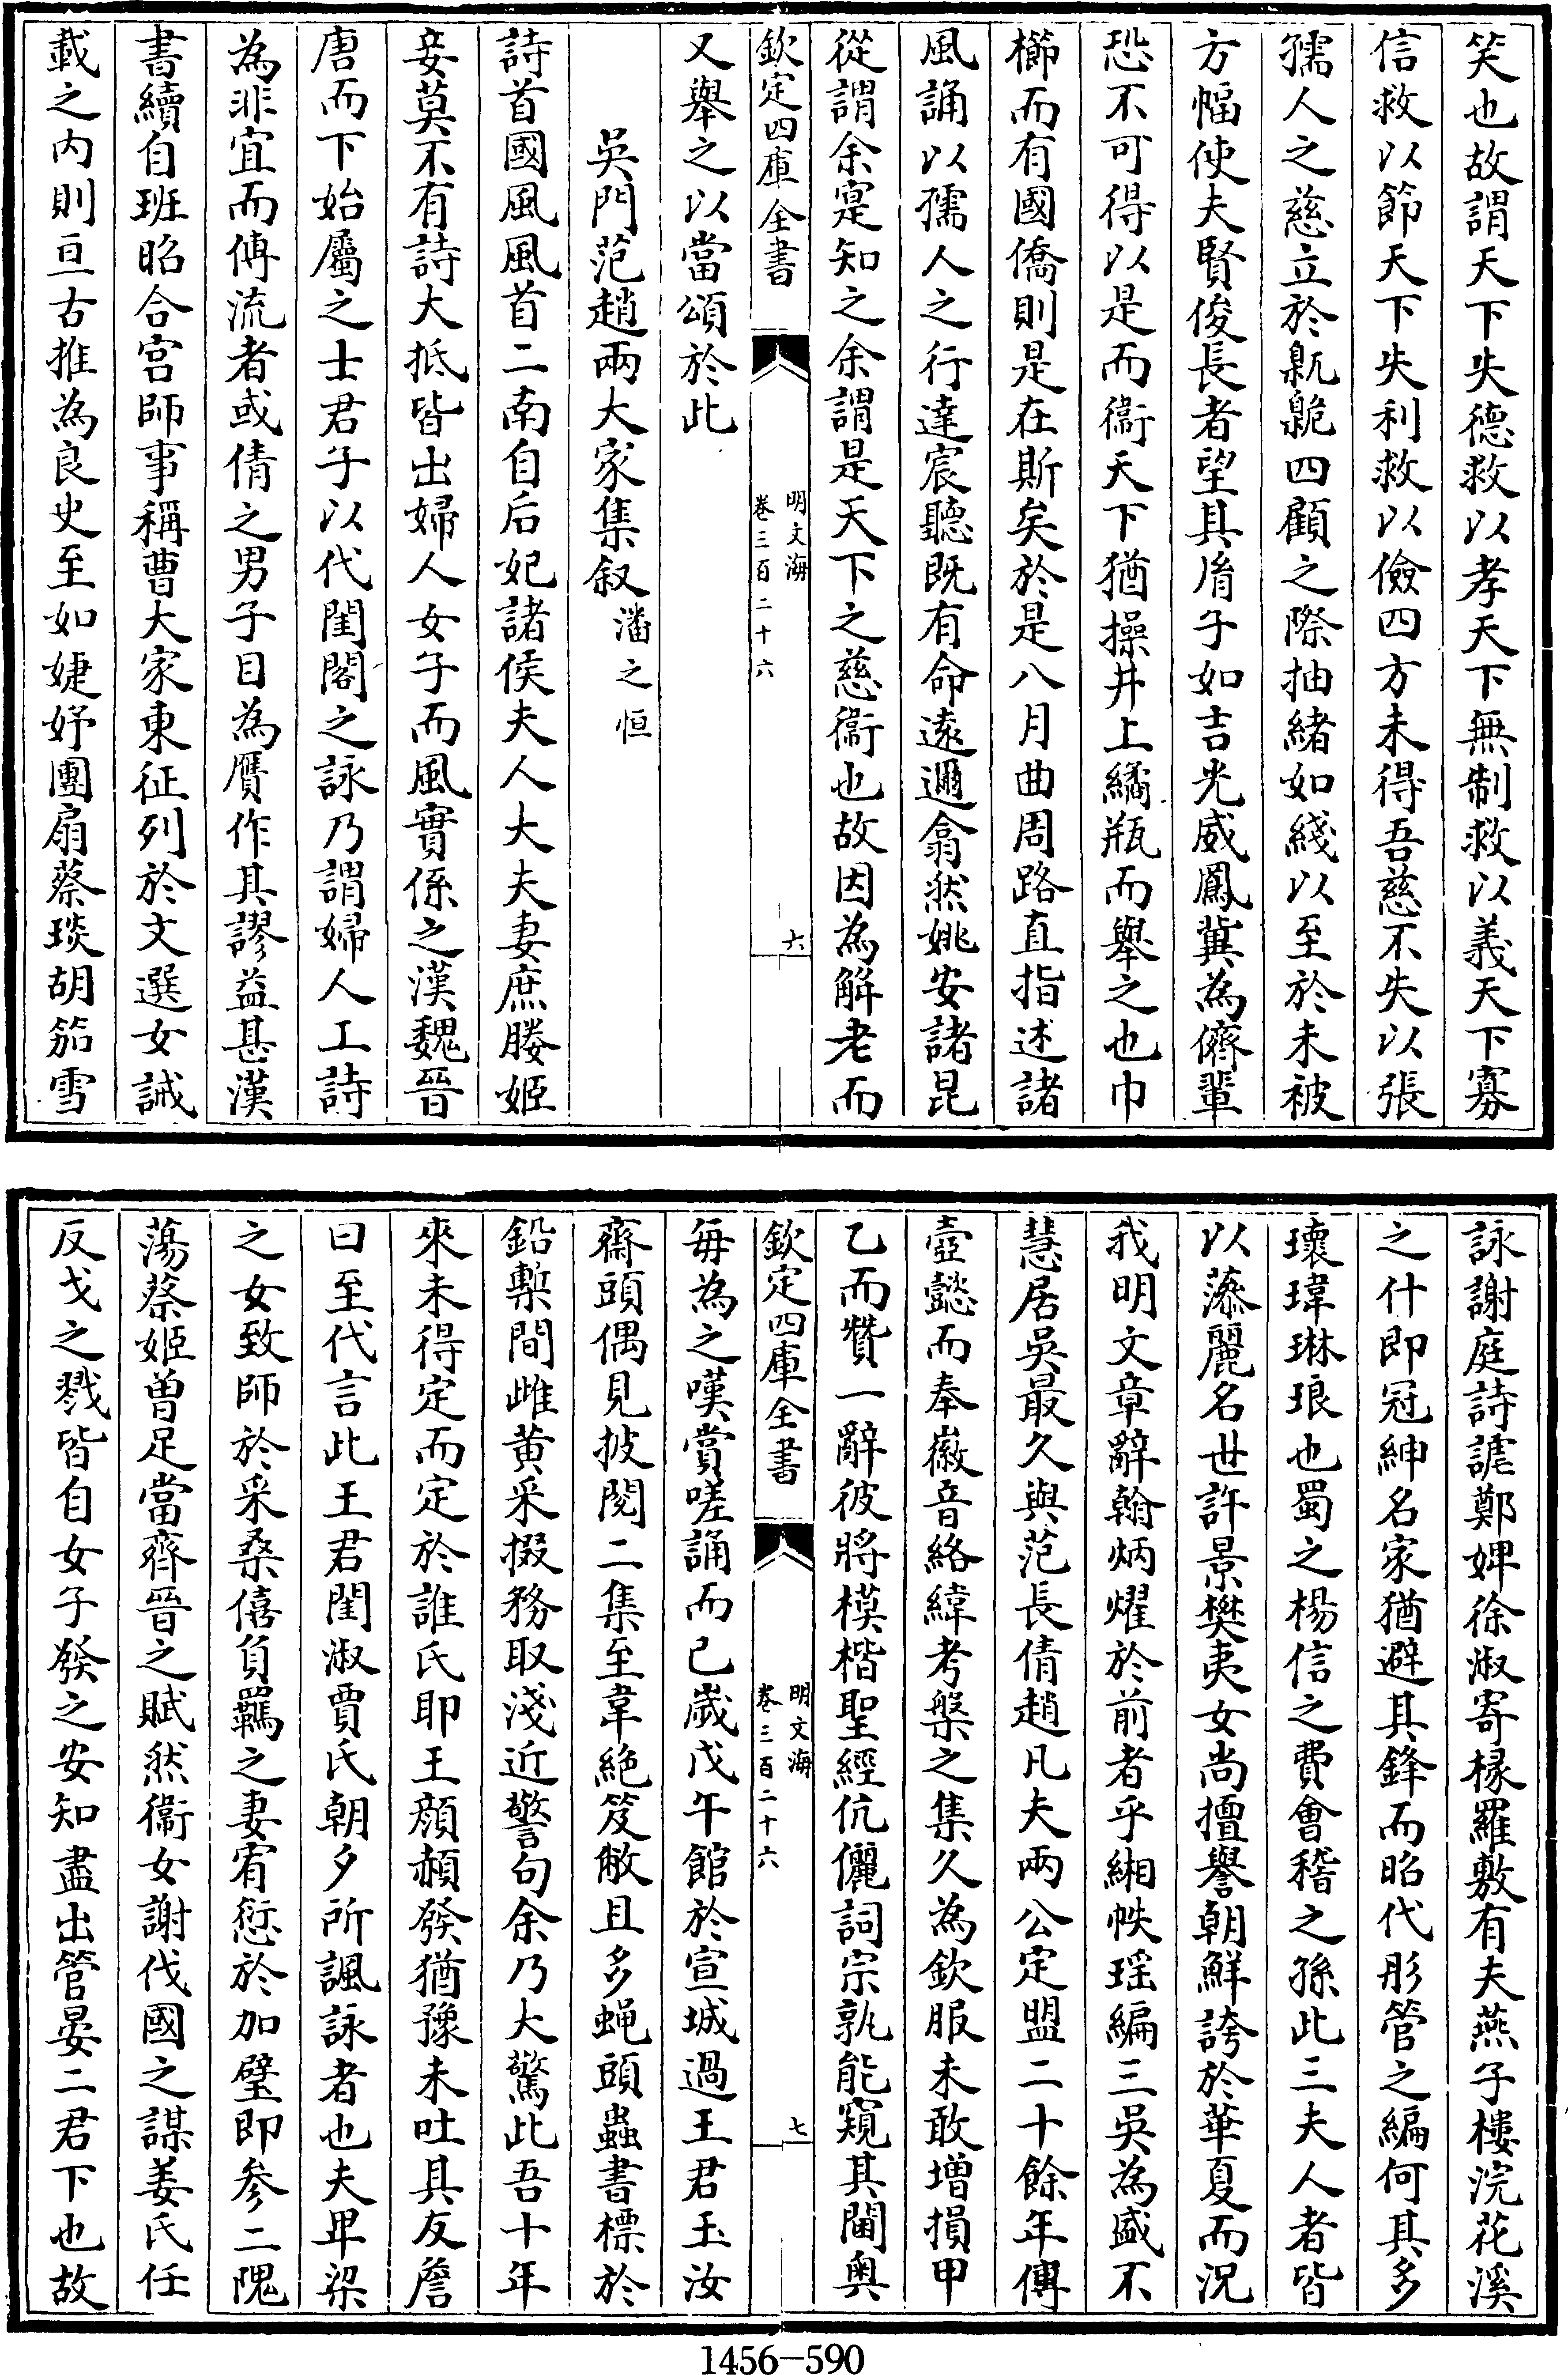 笑也故謂天下失德救以孝天下無制救以義天下寡
信救以節天下失利救以儉四方未得吾慈不失以張
孺人之慈立於臲卼四顧之際抽緒如綫以至於未被
方幅使夫賢俊長者望其胤子如吉光威鳳冀為儕輩
恐不可得以是而衞天下猶操井上繘瓶而舉之也巾
櫛而有國僑則是在斯矣於是八月曲周路直指述諸
風誦以孺人之行達宸聽既有命遠邇翕然姚安諸昆
從謂余寔知之余謂是天下之慈衞也故因為解老而
欽定四庫全書
明文海
卷三百二十六
六
又舉之以當頌於此
吳門范趙兩大家集叙 潘之恒
詩首國風風首二南自后妃諸侯夫人大夫妻庶媵姬
妾莫不有詩大抵皆出婦人女子而風實係之漢魏晉
唐而下始屬之士君子以代閨閣之詠乃謂婦人工詩
為非宜而傅流者或倩之男子目為贋作其謬益甚漢
書續自班昭合宮師事稱曹大家東征列於文選女誡
載之內則亘古推為良史至如婕妤團扇蔡琰胡笳雪
詠謝庭詩誂鄭婢徐淑寄椽羅敷有夫燕子樓浣花溪
之什即冠紳名家猶避其鋒而昭代彤管之編何其多
瓌瑋琳琅也蜀之楊信之費會稽之孫此三夫人者皆
以藻麗名世許景樊夷女尚擅譽朝鮮誇於華夏而況
我明文章辭翰炳燿於前者乎緗帙瑶編三吳為盛不
慧居吳最久與范長倩趙凡夫兩公定盟二十餘年傳
壺懿而奉徽音絡緯考槃之集久為欽服未敢增損甲
乙而贊一辭彼將模楷聖經伉儷詞宗孰能窺其閫奥
欽定四庫全書
明文海
卷三百二十六
七
每為之嘆賞嗟誦而已歲戊午館於宣城過王君玉汝
齋頭偶見披閱二集至韋絶笈敝且多蝇頭蟲書標於
鉛槧間雌黄采掇務取淺近警句余乃大驚此吾十年
來未得定而定於誰氏耶王顔頳發猶豫未吐其友詹
曰至代言此王君閨淑賈氏朝夕所諷詠者也夫畀梁
之女致師於采桑僖負羈之妻宥愆於加璧即參二隗
蕩蔡姬曾足當齊晉之賦然衞女謝伐國之謀姜氏任
反戈之戮皆自女子發之安知盡出管晏二君下也故
1456-590